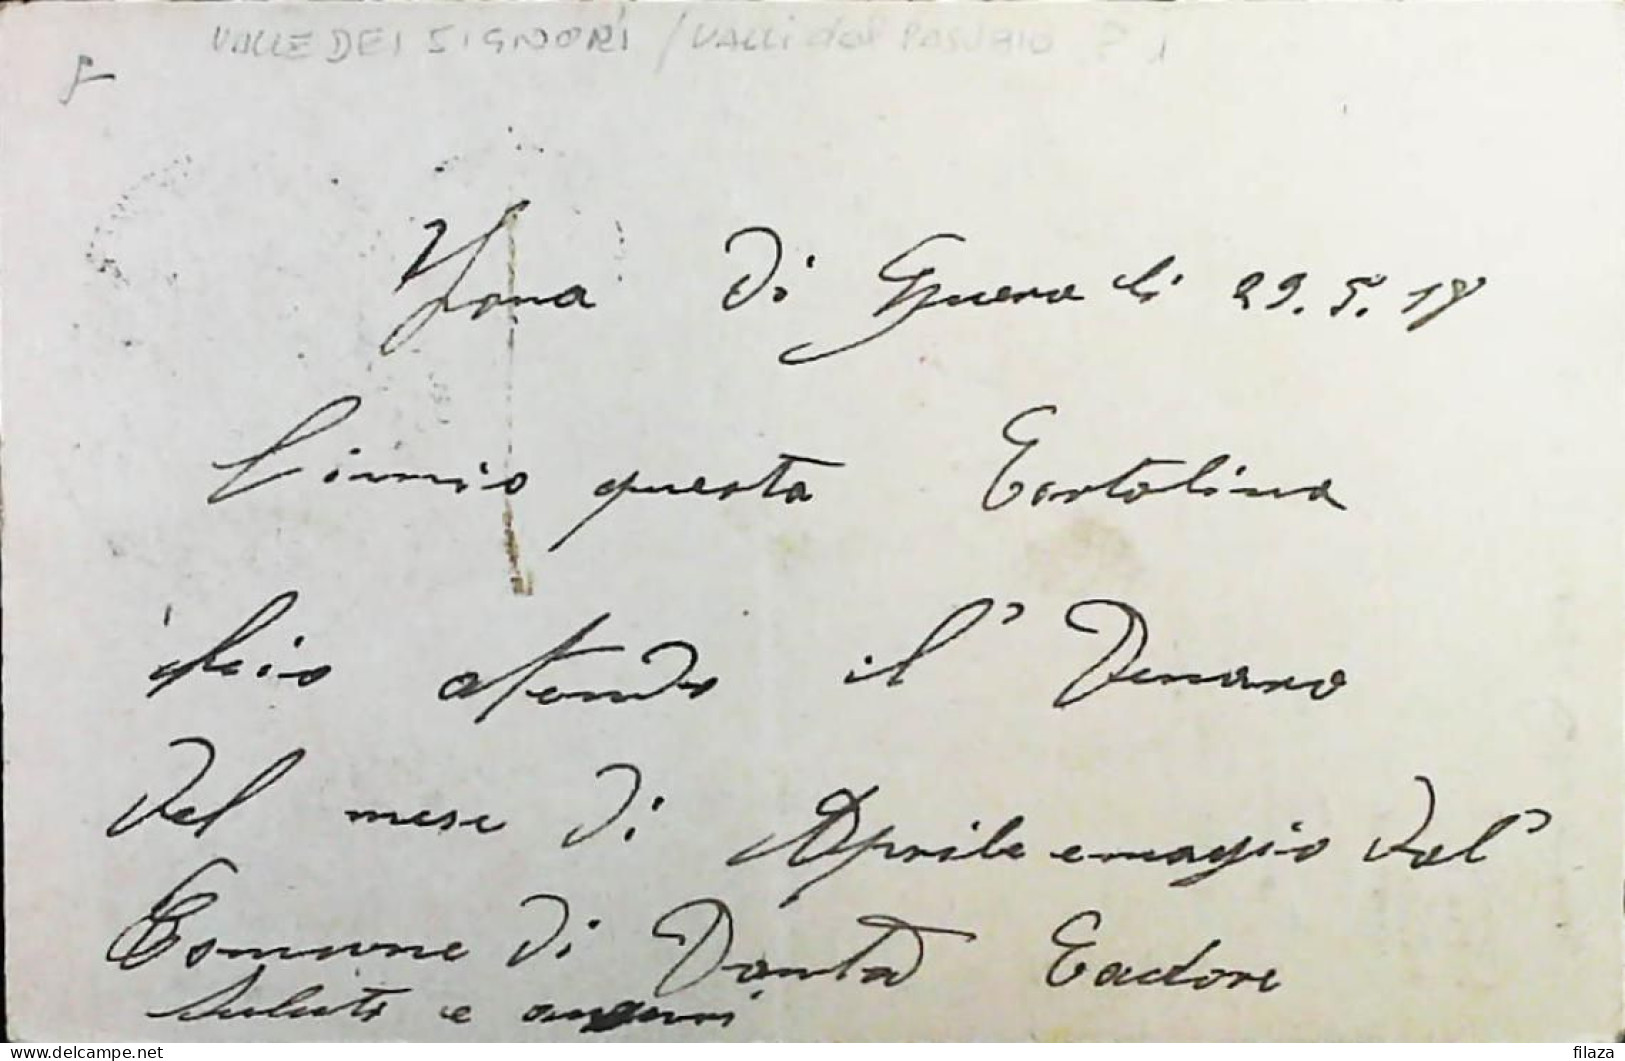 VALLE DEI SIGNORI / VALLI del PASUBIO P.
Zona di Guera li 29.5.18
Linvio questa Cartolina
che io atendo il' Denaro
del mese di Aprile e magio del'
Comune di Danta Cadore
Saluti e auguri
www.delcampe.net
filaza